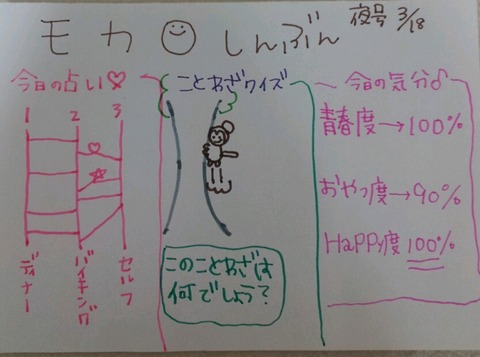 モカ☺しんぶん 夜号 3/18
今日の占い♡
1 2 3
ディナー
バイキング
セルフ
ことわざクイズ
このことわざは
何でしょう?
今日の気分♂
青春度→100%
おやつ度→90%
HaPPy度100%